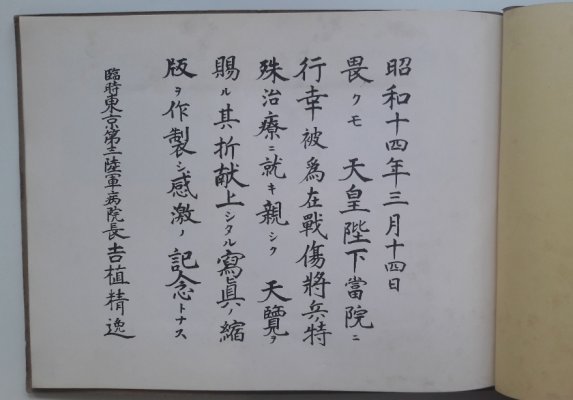 昭和十四年三月十四日
畏クモ 天皇陛下當院ニ
行幸被爲在戰傷將兵特
殊治療ニ就キ親シク 天覽ヲ
賜ル其折献上シタル寫眞ノ縮
版ヲ作製シ感激ノ記念トナス
臨時東京第三陸軍病院長吉植精逸